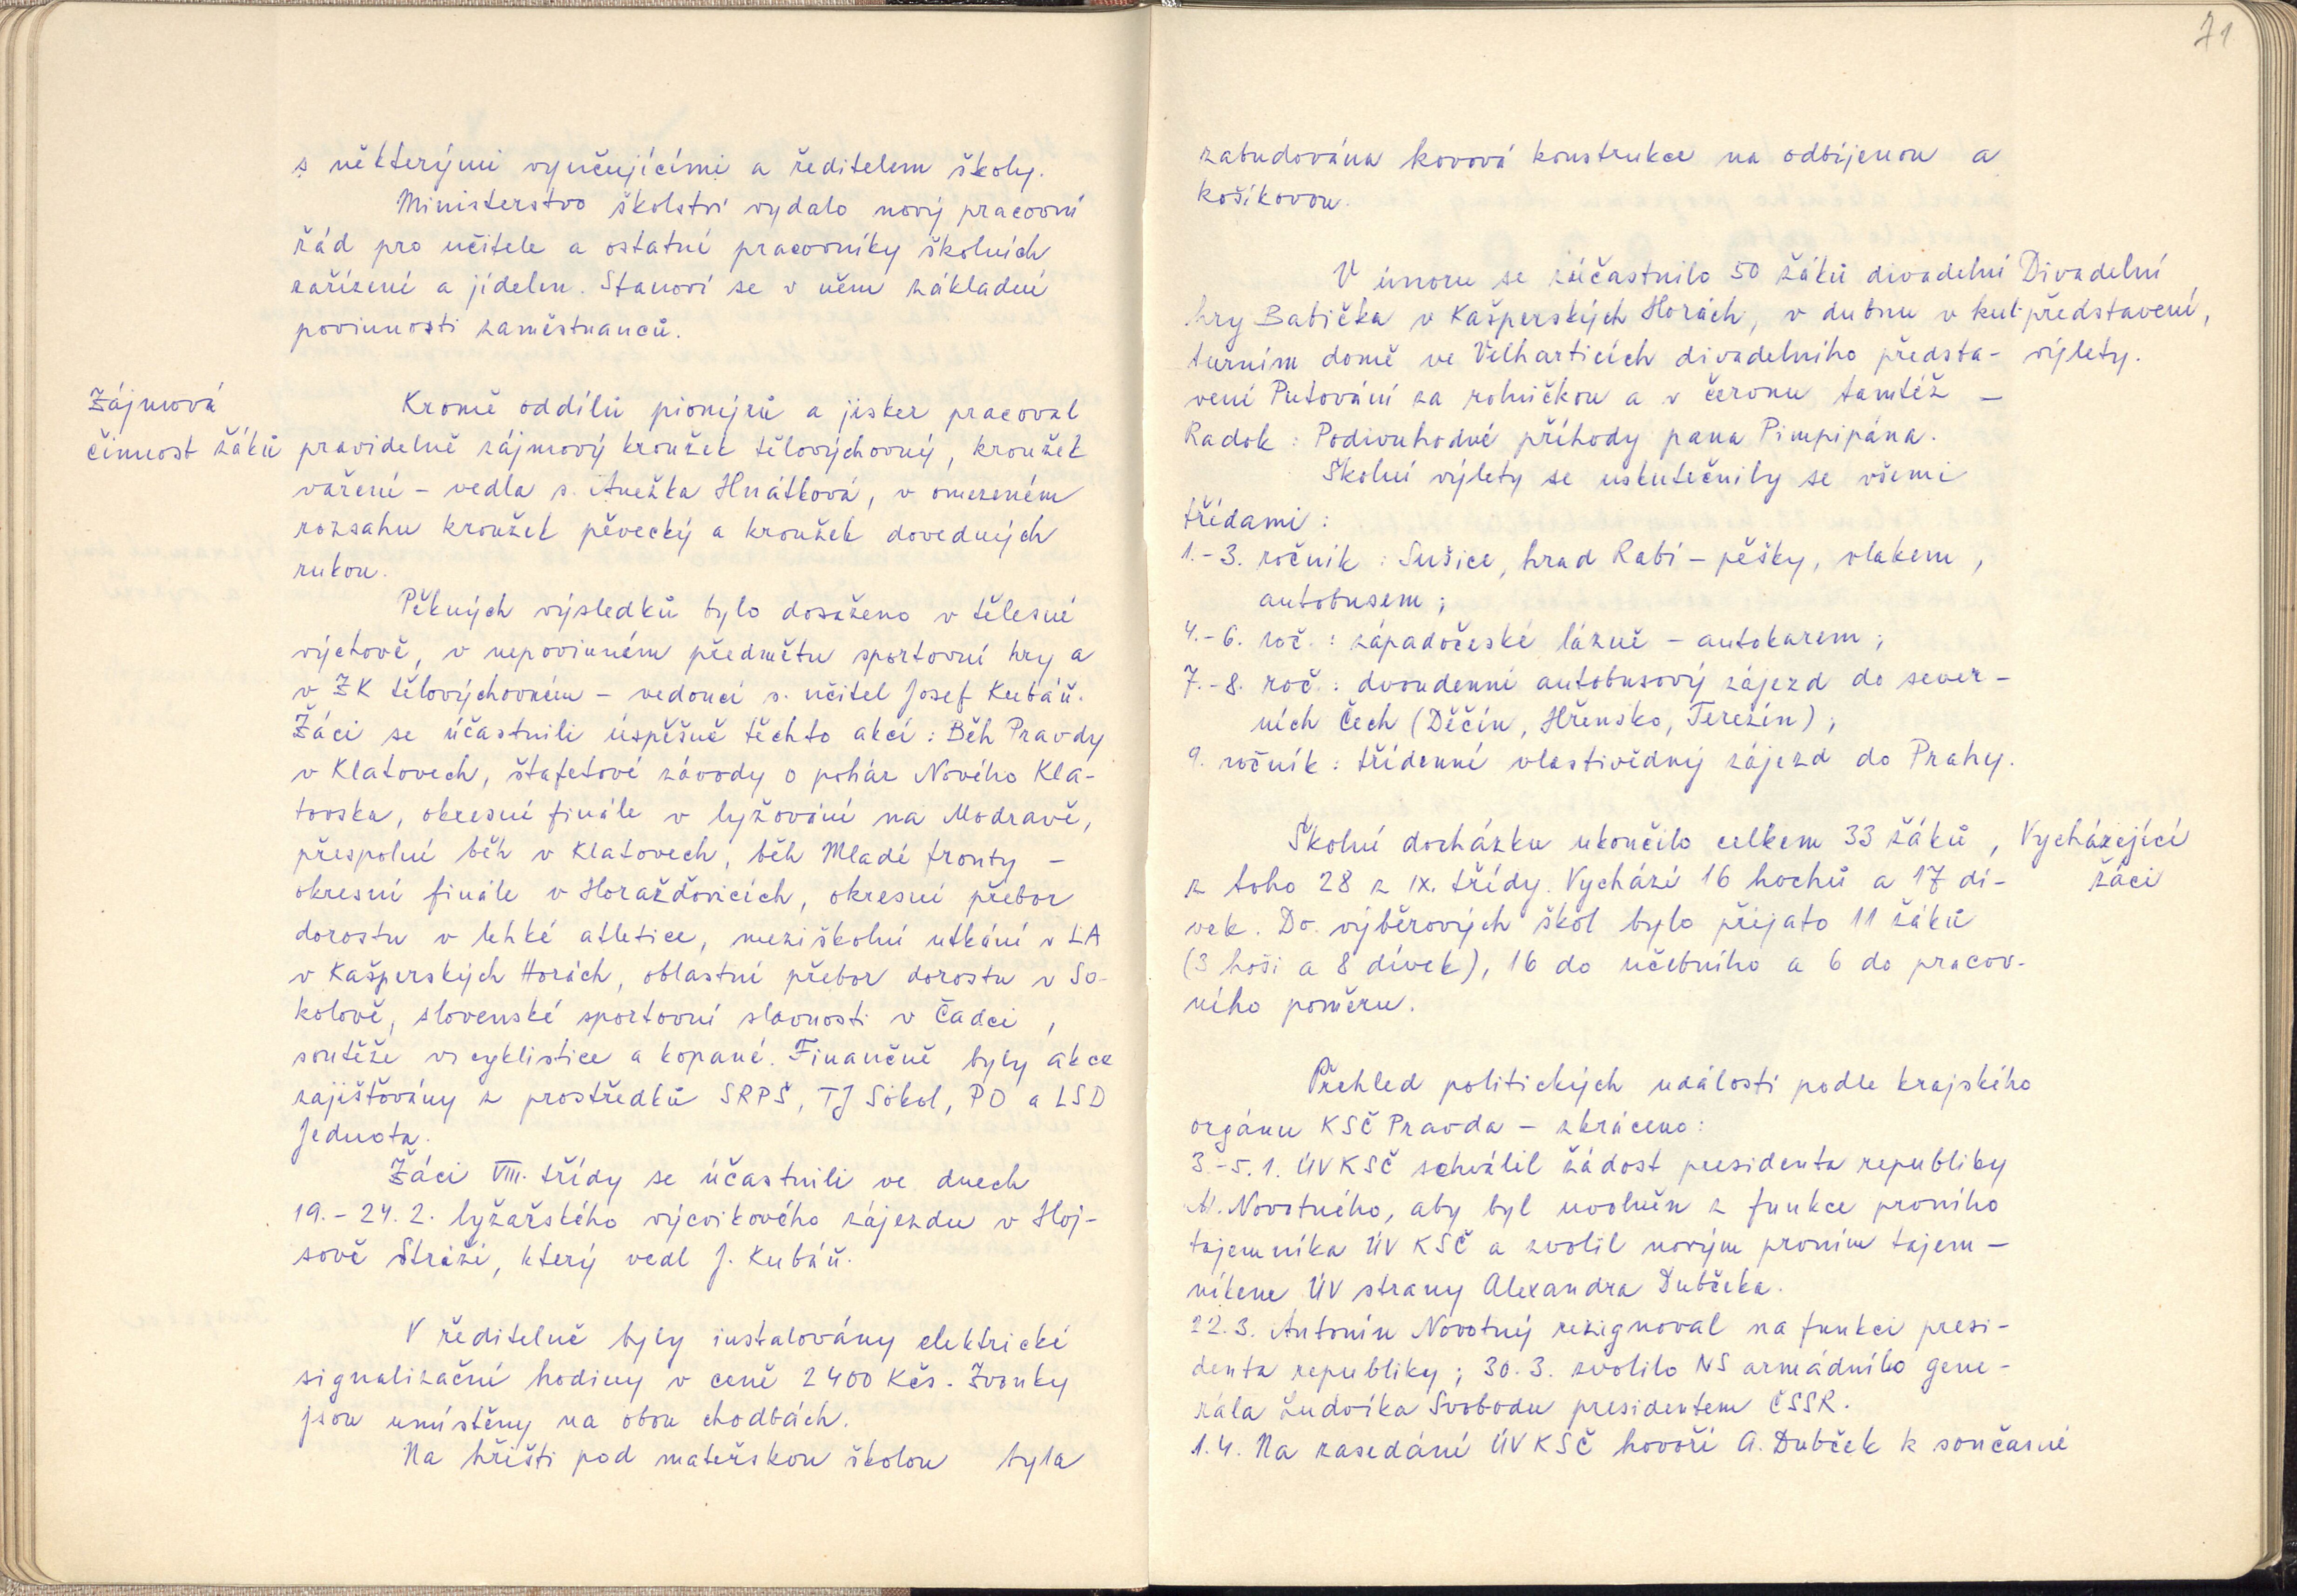 s některými vyučujícími a ředitelem školy.
Ministerstvo školství vydalo nový pracovní
řád pro učitele a ostatní pracovníky školních
zařízení a jídelen. Stanoví se v něm základní
povinnosti zaměstnanců.
Zájmová
činnost žáků
Kromě oddílů pionýrů a jisker pracoval
pravidelně zájmový kroužek tělovýchovný, kroužek
vaření - vedla s. Anežka Hnátková, v omezeném
rozsahu kroužek pěvecký a kroužek dovedných
rukou.
Pěkných výsledků bylo dosaženo v tělesné
výchově, v nepovinném předmětu sportovní hry a
v ZK tělovýchovném - vedoucí s. učitel Josef Kubáň.
Žáci se účastnili úspěšně těchto akcí: Běh Pravdy
v Klatovech, štafetové závody o pohár Nového Kla-
tovska, okresní finále v lyžování na Modravě,
přespolní běh v Klatovech, běh Mladé fronty -
okresní finále v Horažďovicích, okresní přebor
dorostu v lehké atletice, meziškolní utkání v LA
v Kašperských Horách, oblastní přebor dorostu v So-
kolově, slovenské sportovní slavnosti v Čadci,
soutěže v cyklistice a kopané. Finančně byly akce
zajišťovány z prostředků SRPŠ, TJ Sokol, PO a LSD
Jednota.
Žáci VIII. třídy se účastnili ve dnech
19.-24.2. lyžařského výcvikového zájezdu v Hoj-
sově Stráži, který vedl J. Kubáň.
V ředitelně byly instalovány elektrické
signalizační hodiny v ceně 2400 Kčs. Zvonky
jsou umístěny na obou chodbách.
Na hřišti pod mateřskou školou byla
71
zabudována kovová konstrukce na odbíjenou a
košíkovou.
V únoru se zúčastnilo 50 žáků divadelní
hry Babička v Kašperských Horách, v dubnu v kul-
turním domě ve Velharticích divadelního předsta-
vení Putování za rolničkou a v červnu tamtéž -
Radok: Podivuhodné příhody pana Pimpipána.
Divadelní
představení,
výlety.
Školní výlety se uskutečnily se všemi
třídami:
1.-3. ročník: Sušice, hrad Rabí - pěšky, vlakem,
autobusem;
4.-6. roč.: západočeské lázně - autokarem;
7.-8. roč.: dvoudenní autobusový zájezd do sever-
ních Čech (Děčín, Hřensko, Terezín);
9. ročník: třídenní vlastivědný zájezd do Prahy.
Školní docházku ukončilo celkem 33 žáků,
z toho 28 z IX. třídy. Vychází 16 hochů a 17 dí-
vek. Do výběrových škol bylo přijato 11 žáků
(3 hoši a 8 dívek), 16 do učebního a 6 do pracov-
ního poměru.
Vycházející
žáci
Přehled politických událostí podle krajského
orgánu KSČ Pravda - zkráceno:
3.-5.1. ÚV KSČ schválil žádost presidenta republiky
A. Novotného, aby byl uvolněn z funkce prvního
tajemníka ÚV KSČ a zvolil novým prvním tajem-
níkem ÚV strany Alexandra Dubčeka.
22.3. Antonín Novotný rezignoval na funkci presi-
denta republiky; 30.3. zvolilo NS armádního gene-
rála Ludvíka Svobodu presidentem ČSSR.
1.4. Na zasedání ÚV KSČ hovoří A. Dubček k současné